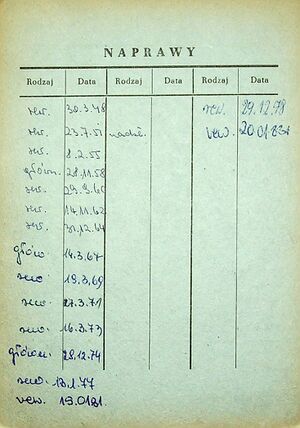 NAPRAWY
Rodzaj Data Rodzaj Data Rodzaj Data
rew. 30.3.48 rew. 29.12.78
rew. 23.7.51 rew. 20.01.83
rew. 8.2.55
główn. 28.11.58
rew. 29.9.60
rew. 14.11.62
rew. 31.12.64
główn. 14.3.67
rew. 19.3.69
rew. 27.3.71
rew. 16.3.73
główn. 28.12.74
rew. 13.1.77
rew. 19.01.81.